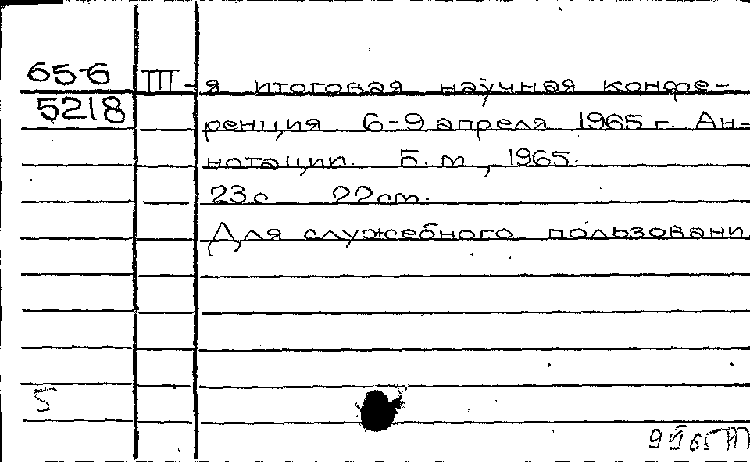 65-6 III-я итоговая научная конфе-
5218 ренция 6-9 апреля 1965 г. Ан-
нотации. Б.м., 1965.
23 с 22 см.
Для служебного пользовани
5